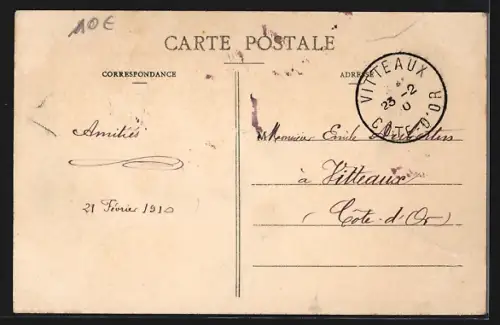 10€
CARTE POSTALE
CORRESPONDANCE
ADRESSE
VITTEAUX
23 -2
CÔTE-D'OR
Amitiés
21 Février 1910
Monsieur Emile
à Vitteaux
(Côte-d'Or)